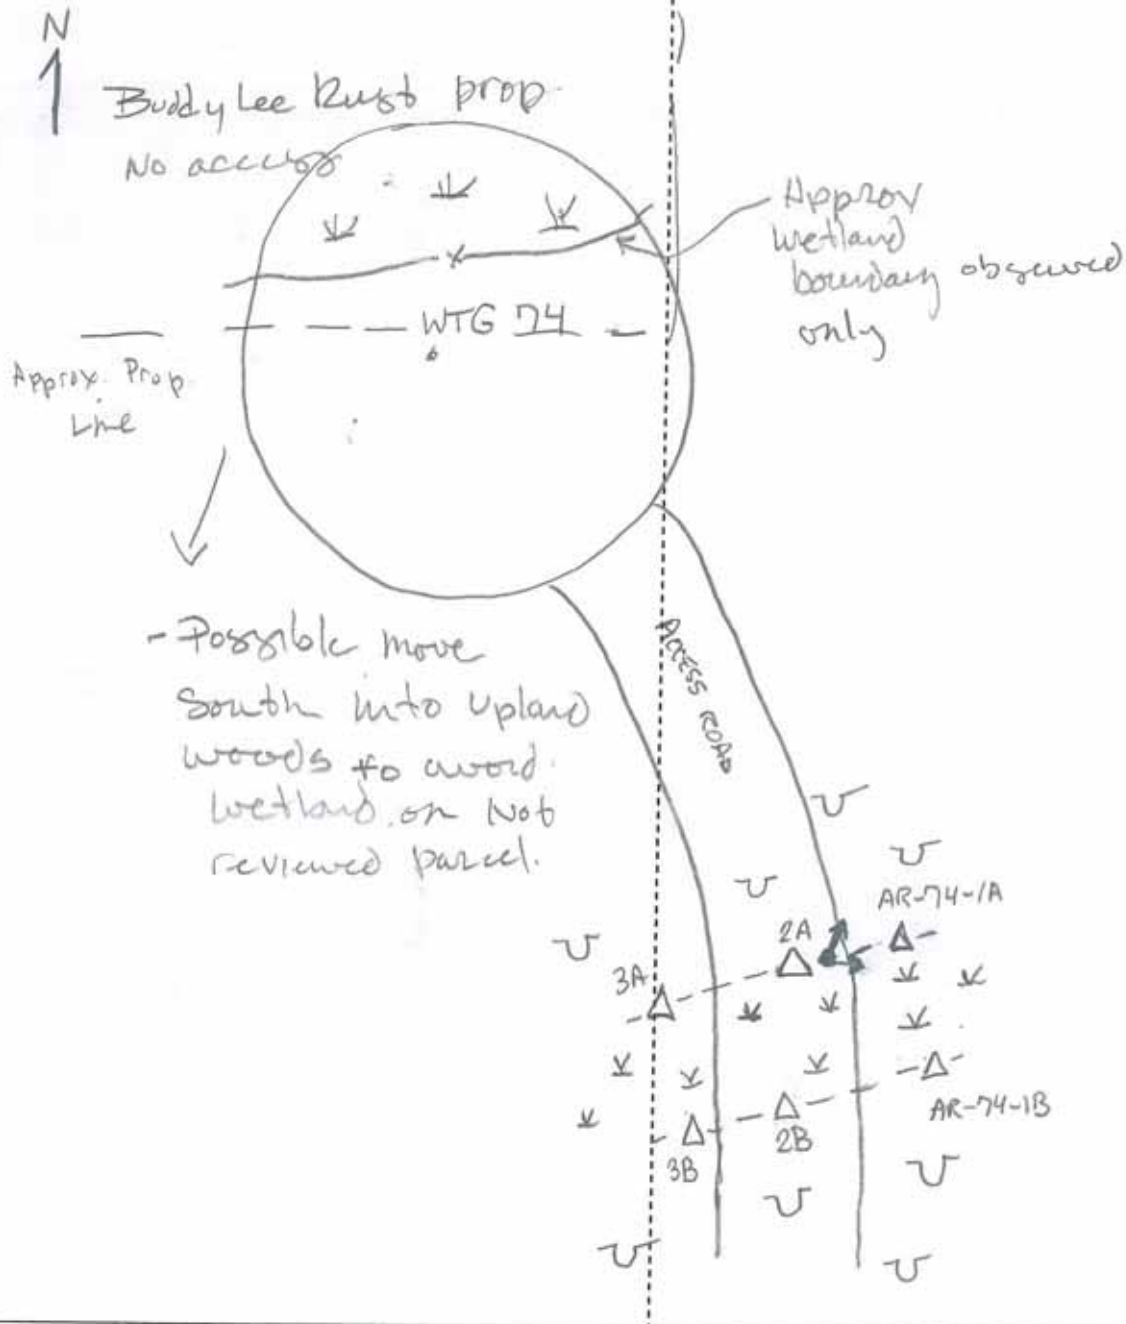 N
Buddy Lee Rust prop
No access
Approx
wetland
boundary observed
only
WTG 74
Approx. Prop
Line
- Possible move
South into upland
woods to avoid
wetland on Not
reviewed parcel.
ACCESS ROAD
AR-74-1A
2A
3A
AR-74-1B
2B
3B